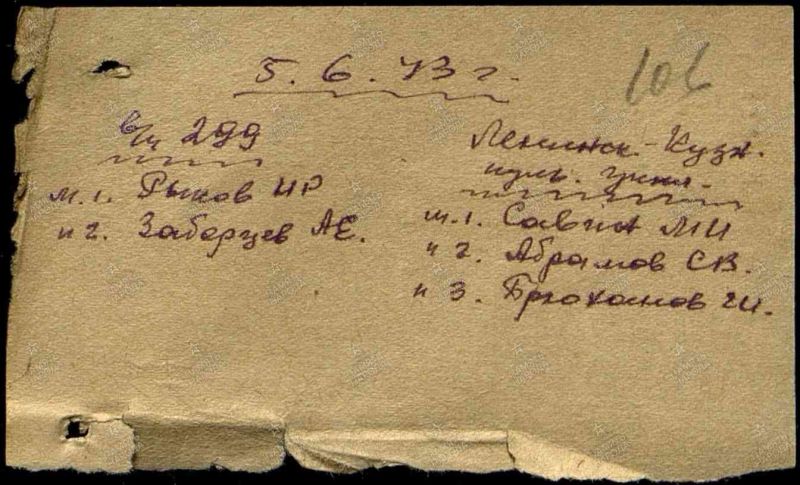 5.6.43 г.
106
в/ч 299
м.1. Рыков ИР
и 2. Заборцев АЕ.
Ленинск-Кузн.
пуль.
м.1. Савин МИ
и 2. Абрамов СВ.
и 3. Брюханов ГИ.